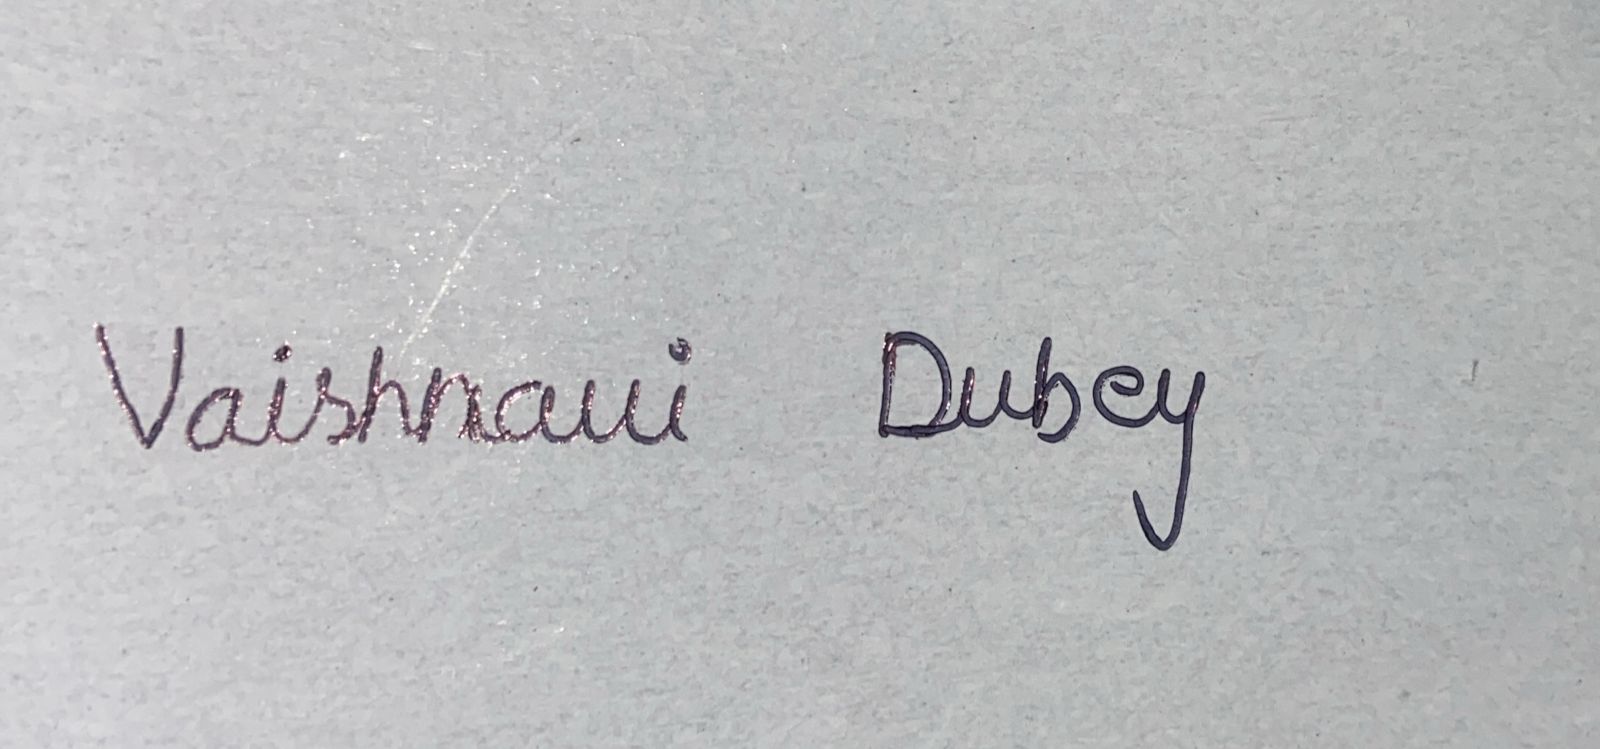 Vaishnavi Dubey